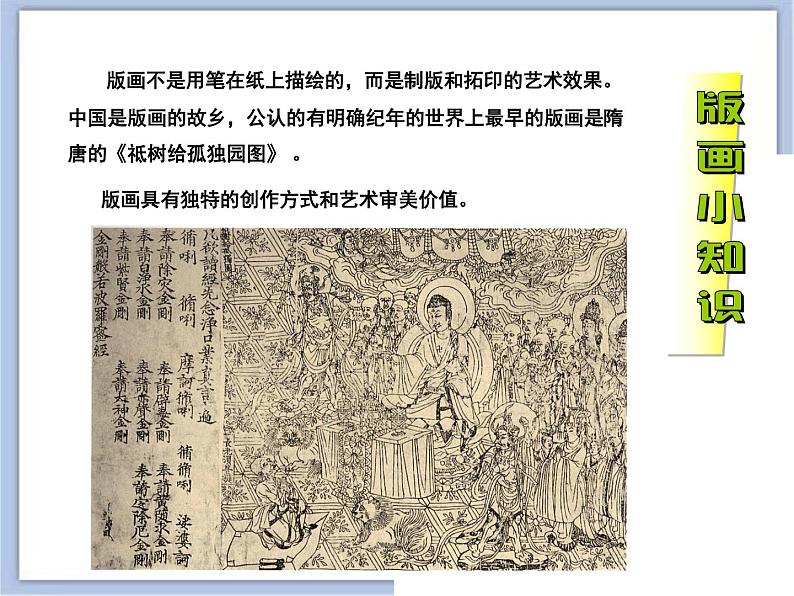 版画不是用笔在纸上描绘的，而是制版和拓印的艺术效果。
中国是版画的故乡，公认的有明确纪年的世界上最早的版画是隋
唐的《祗树给孤独园图》 。
版画具有独特的创作方式和艺术审美价值。
版画小知识
凡欲讀經先念淨口業真言遍
脩唎 脩唎 摩訶脩唎 脩脩唎 娑婆訶
奉請除灾金剛 奉請辟毒金剛 奉請黃隨求金剛
奉請白淨水金剛 奉請赤聲金剛 奉請定除厄金剛
奉請紫賢金剛 奉請大神金剛
金剛般若波羅蜜經